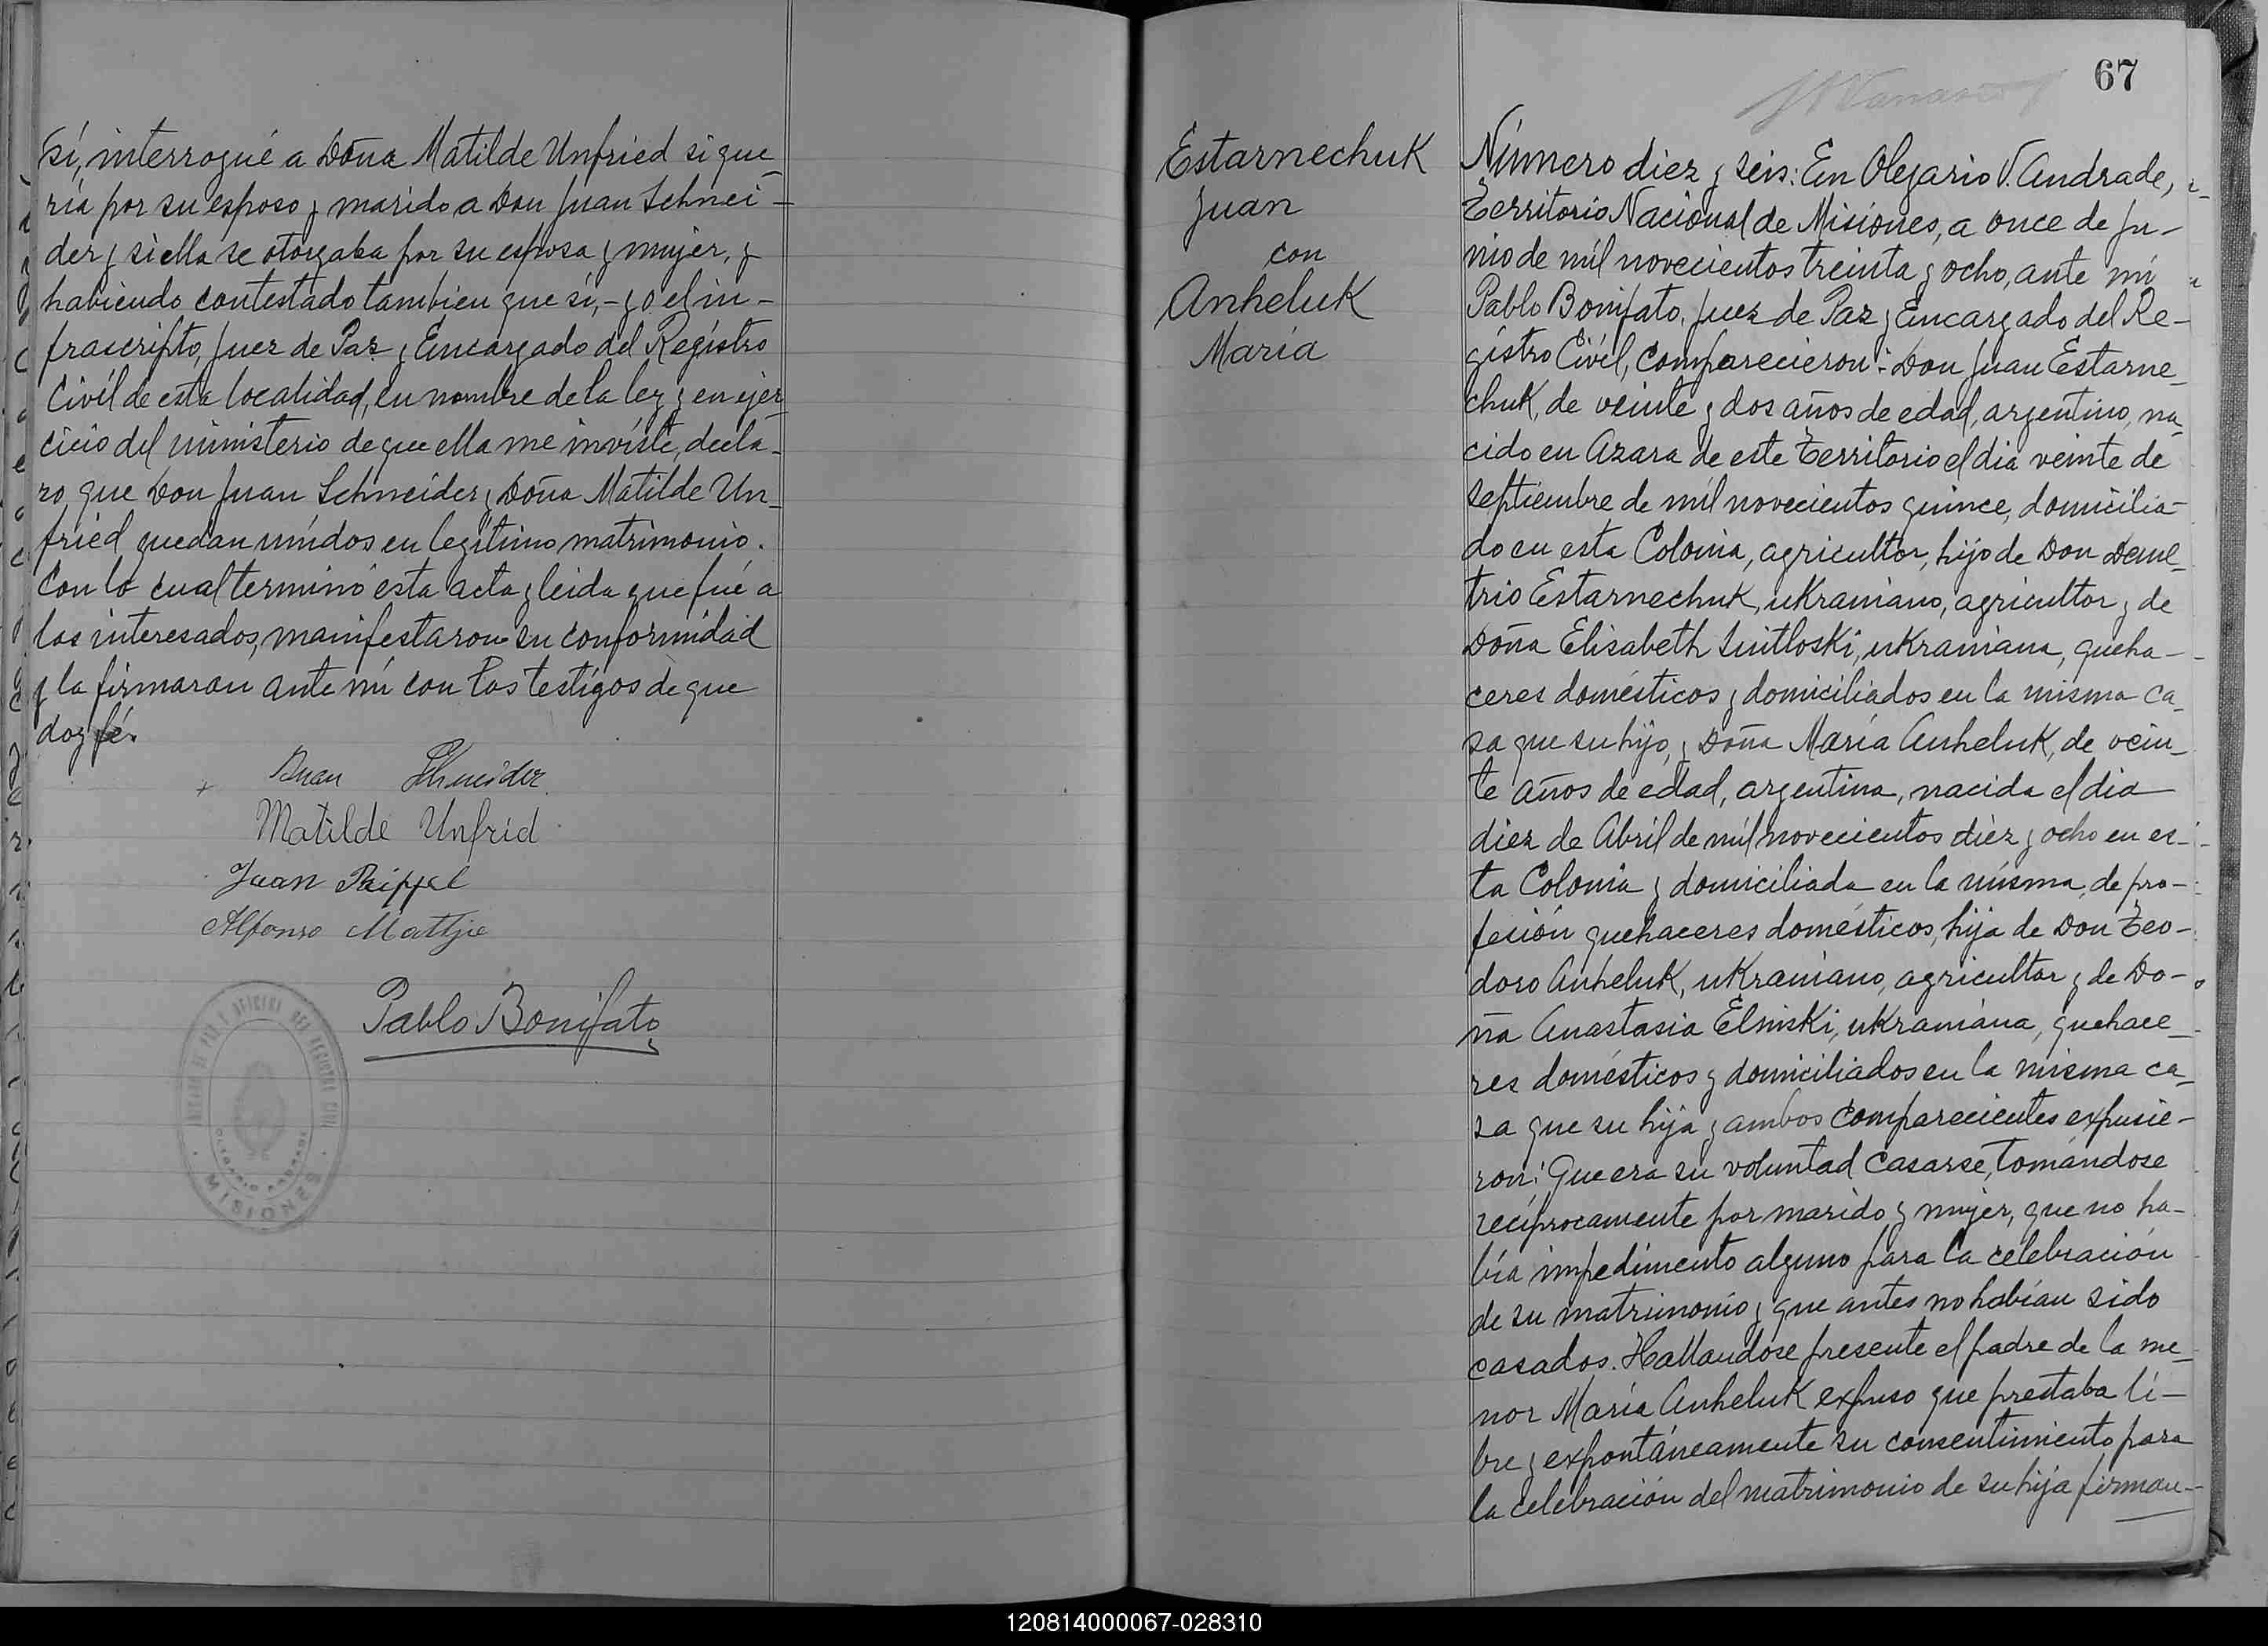 sí, interrogué a Doña Matilde Unfried si que_
ría por su esposo y marido a Don Juan Schnei-
der y si ella se otorgaba por su esposa y mujer, y
habiendo contestado tambien que sí,- yo el in-
frascripto, Juez de Paz y Encargado del Registro
Civil de esta localidad, en nombre de la ley y en ejer_
cicio del ministerio de que ella me inviste, decla-
ro que Don Juan Schneider y Doña Matilde Un_
fried quedan unidos en legítimo matrimonio.
Con lo cual terminó esta acta y leida que fué a
los interesados, manifestaron su conformidad
y la firmaron ante mí con los testigos de que
doy fé.
Juan Schneider
Matilde Unfrid
Juan
Alfonso Mattje
Pablo Bonifato
MISIONES
67
Estarnechuk
Juan
con
Anheluk
María
Número diez y seis: En Olegario V. Andrade,
Territorio Nacional de Misiones, a once de Ju-
nio de mil novecientos treinta y ocho, ante mí
Pablo Bonifato, Juez de Paz y Encargado del Re-
gistro Civil, comparecieron: Don Juan Estarne_
chuk, de veinte y dos años de edad, argentino, na_
cido en Azara de este Territorio el dia veinte de
septiembre de mil novecientos quince, domicilia-
do en esta Colonia, agricultor, hijo de Don Deme_
trio Estarnechuk, ukraniano, agricultor y de
Doña Elisabeth Suitloski, ukraniana, queha-
ceres domésticos y domiciliados en la misma ca_
sa que su hijo, y Doña María Anheluk, de vein_
te años de edad, argentina, nacida el dia
diez de Abril de mil novecientos diez y ocho en es-
ta Colonia y domiciliada en la misma, de pro-
feción quehaceres domésticos, hija de Don Teo-
doro Anheluk, ukraniano, agricultor y de Do-
ña Anastasia Elniski, ukraniana, quehace_
res domésticos y domiciliados en la misma ca_
sa que su hija y ambos comparecientes expusie-
ron: Que era su voluntad casarse, tomándose
recíprocamente por marido y mujer, que no ha-
bía impedimento alguno para la celebración
de su matrimonio y que antes no habían sido
casados. Hallandose presente el padre de la me_
nor María Anheluk expuso que prestaba li-
bre y expontáneamente su consentimiento para
la celebración del matrimonio de su hija firman-
120814000067-028310